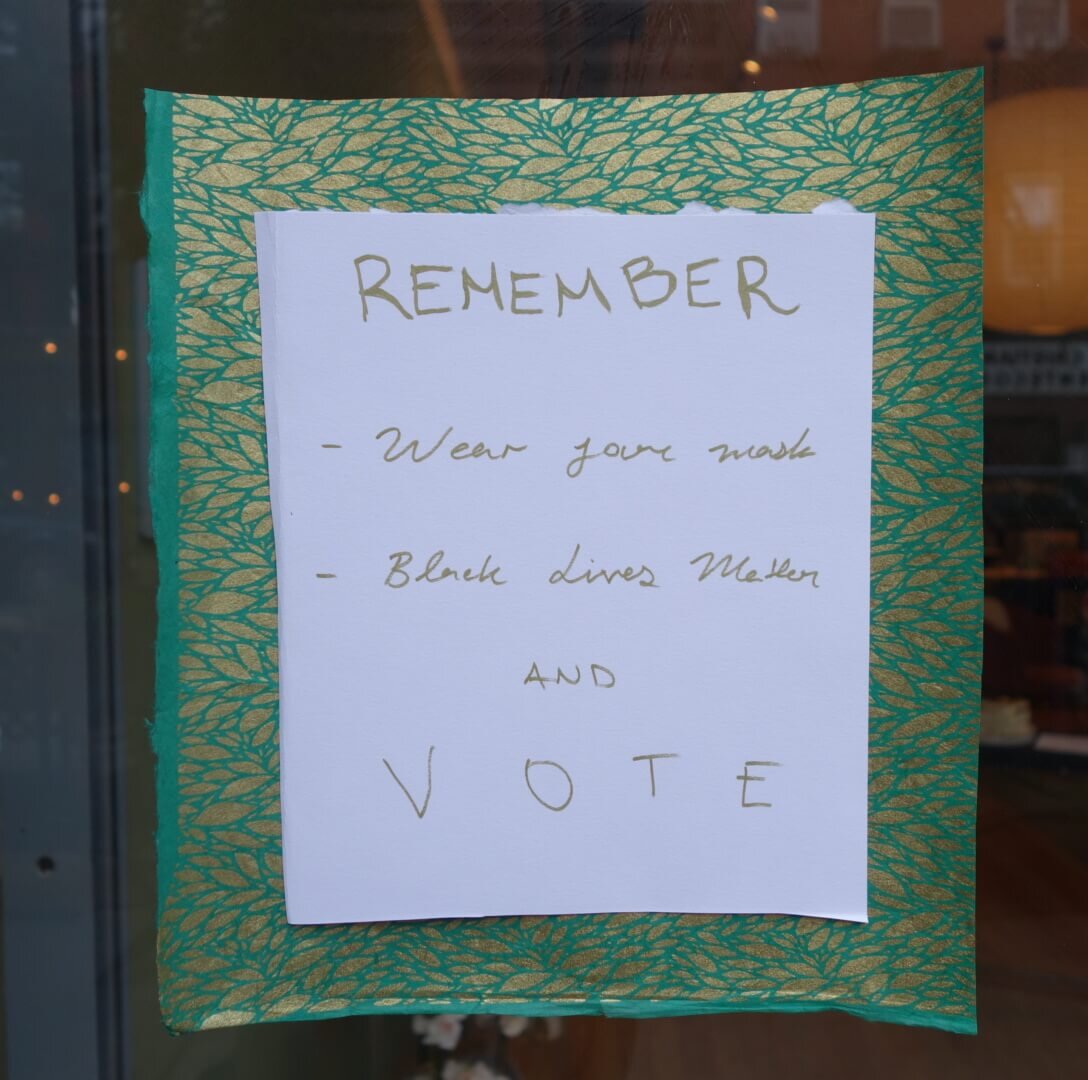 REMEMBER
- Wear your mask
- Black Lives Matter
AND
VOTE